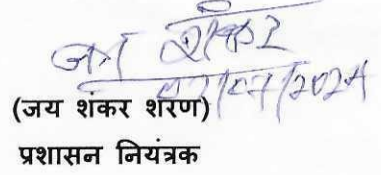 जय शंकर
02/07/2024
(जय शंकर शरण)
प्रशासन नियंत्रक